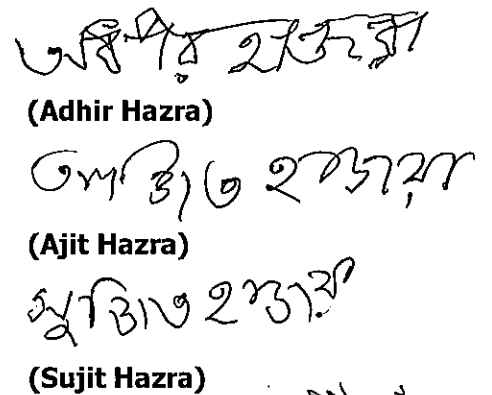 অধীর হাজরা
(Adhir Hazra)
অজিত হাজরা
(Ajit Hazra)
সুজিত হাজরা
(Sujit Hazra)